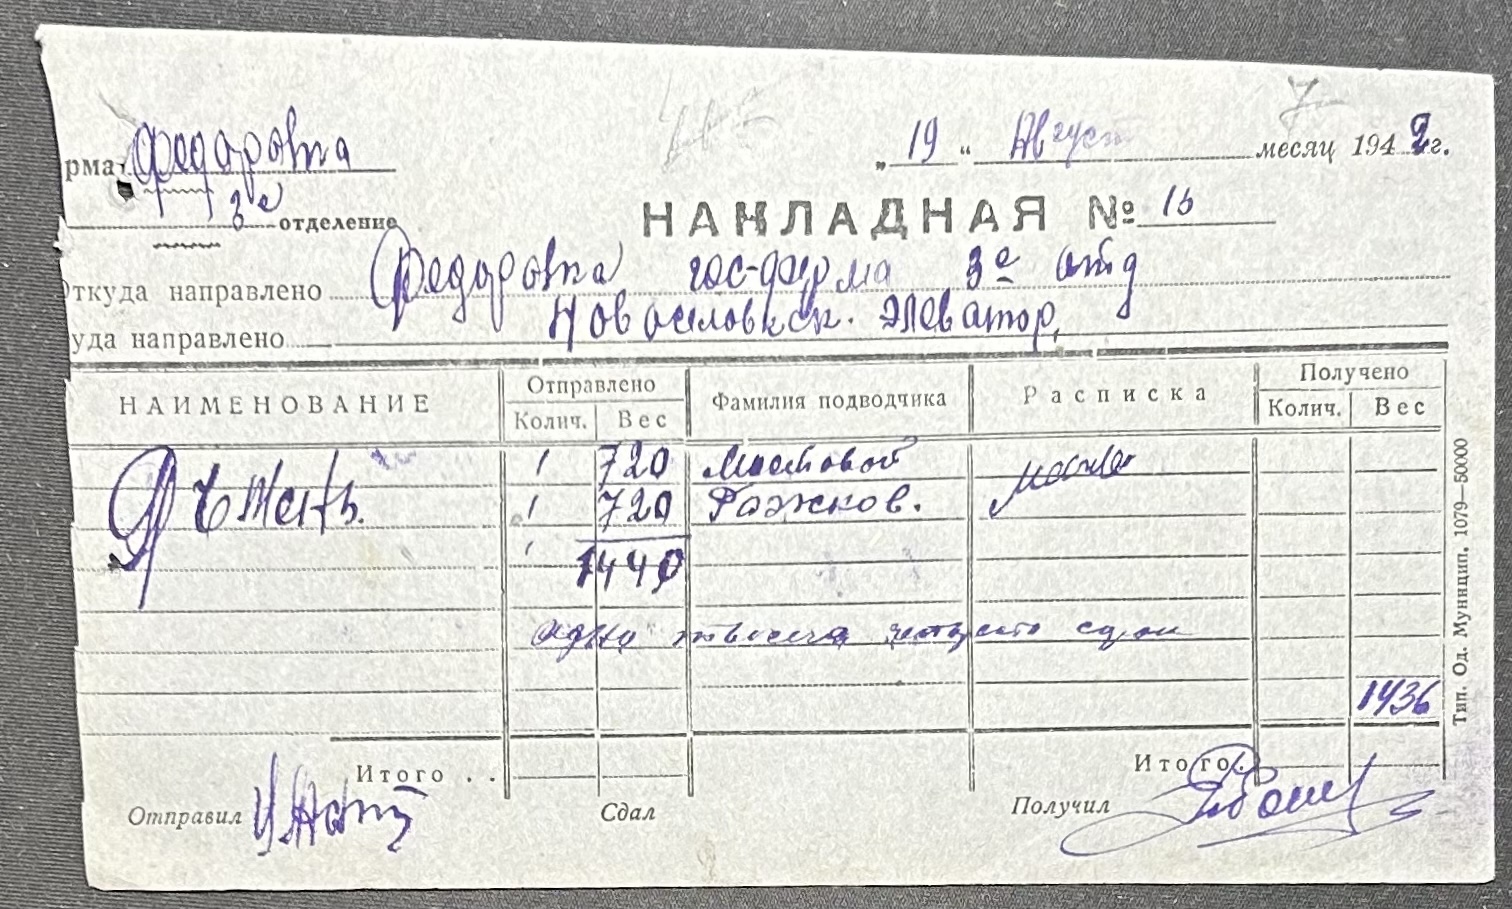 рма Федоровка
„ 19 “ Август месяц 1942 г.
3е отделение
НАКЛАДНАЯ № 16
Откуда направлено Федоровка гос-ферма 3е отд
уда направлено элеватор,
НАИМЕНОВАНИЕ Отправлено Фамилия подводчика Расписка Получено
Колич. Вес Колич. Вес
Ячмень. 1 720 Мостовой
1 720 Рожков.
1 1440
одна тысяча четыреста сорок
1436
Итого . . Итого .
Отправил Сдал Получил
Тип. Од. Муницип. 1079—50000